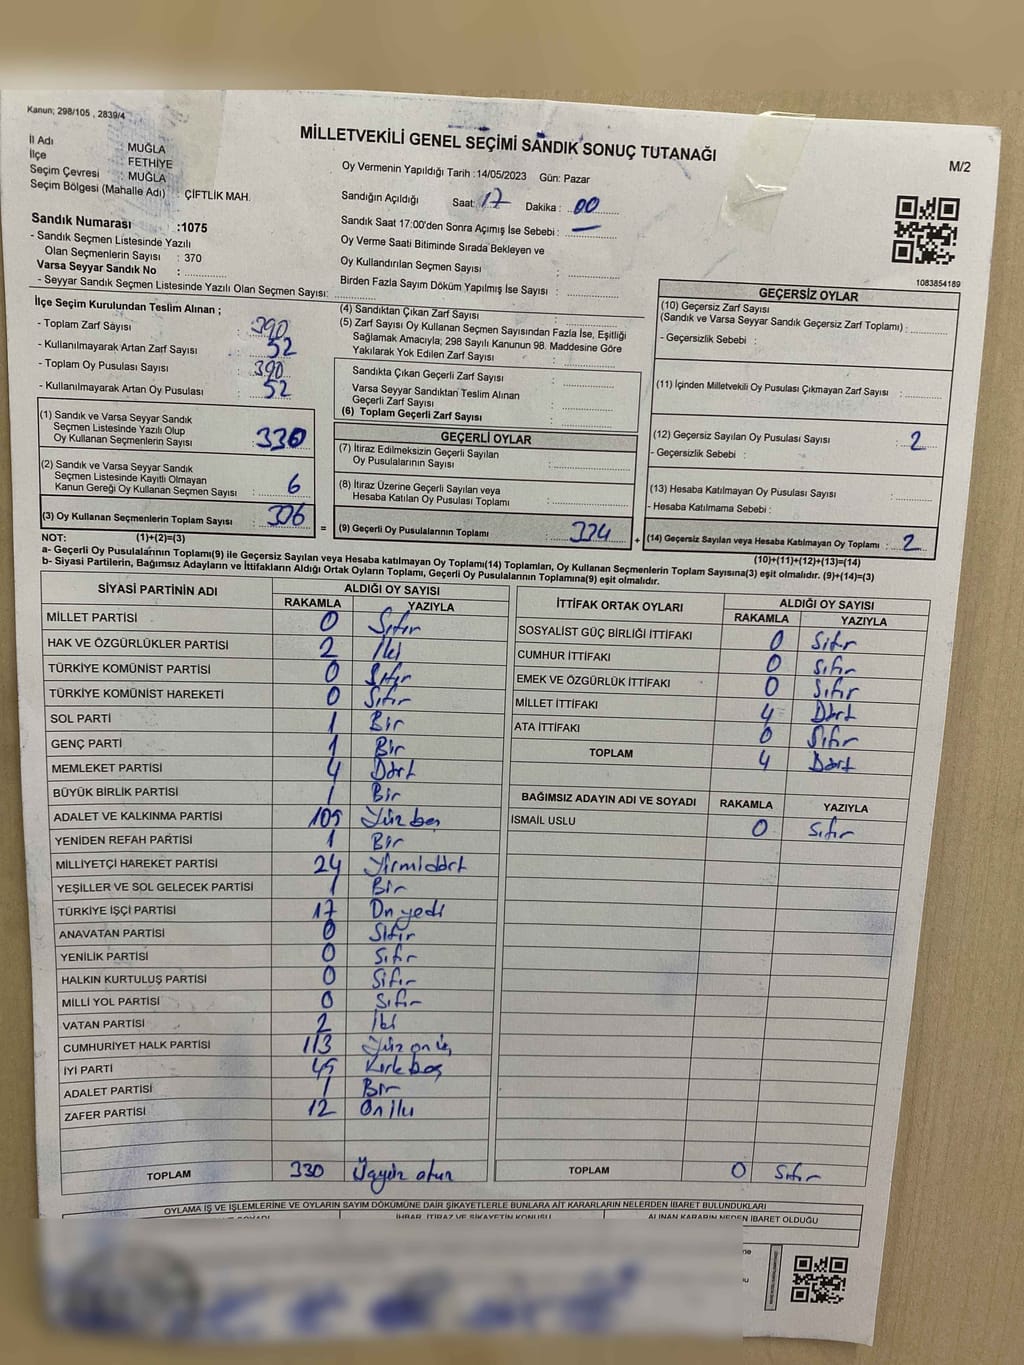 Kanun; 298/105 , 2839/4
MİLLETVEKİLİ GENEL SEÇİMİ SANDIK SONUÇ TUTANAĞI
M/2
İl Adı : MUĞLA
İlçe : FETHİYE
Seçim Çevresi : MUĞLA
Seçim Bölgesi (Mahalle Adı) : ÇİFTLİK MAH.
Oy Vermenin Yapıldığı Tarih :14/05/2023 Gün: Pazar
Sandığın Açıldığı Saat: 17 Dakika : 00
Sandık Saat 17:00'den Sonra Açımış İse Sebebi :
Oy Verme Saati Bitiminde Sırada Bekleyen ve
Oy Kullandırılan Seçmen Sayısı :
Birden Fazla Sayım Döküm Yapılmış İse Sayısı :
Sandık Numarası :1075
- Sandık Seçmen Listesinde Yazılı
Olan Seçmenlerin Sayısı : 370
Varsa Seyyar Sandık No :
- Seyyar Sandık Seçmen Listesinde Yazılı Olan Seçmen Sayısı:
1083854189
İlçe Seçim Kurulundan Teslim Alınan ;
- Toplam Zarf Sayısı : 390
- Kullanılmayarak Artan Zarf Sayısı : 52
- Toplam Oy Pusulası Sayısı : 390
- Kullanılmayarak Artan Oy Pusulası : 52
(1) Sandık ve Varsa Seyyar Sandık
Seçmen Listesinde Yazılı Olup
Oy Kullanan Seçmenlerin Sayısı : 330
(2) Sandık ve Varsa Seyyar Sandık
Seçmen Listesinde Kayıtlı Olmayan
Kanun Gereği Oy Kullanan Seçmen Sayısı : 6
(3) Oy Kullanan Seçmenlerin Toplam Sayısı : 306
(4) Sandıktan Çıkan Zarf Sayısı :
(5) Zarf Sayısı Oy Kullanan Seçmen Sayısından Fazla İse, Eşitliği
Sağlamak Amacıyla; 298 Sayılı Kanunun 98. Maddesine Göre
Yakılarak Yok Edilen Zarf Sayısı :
Sandıkta Çıkan Geçerli Zarf Sayısı :
Varsa Seyyar Sandıktan Teslim Alınan
Geçerli Zarf Sayısı :
(6) Toplam Geçerli Zarf Sayısı :
GEÇERLİ OYLAR
(7) İtiraz Edilmeksizin Geçerli Sayılan
Oy Pusulalarının Sayısı :
(8) İtiraz Üzerine Geçerli Sayılan veya
Hesaba Katılan Oy Pusulası Toplamı :
= (9) Geçerli Oy Pusulalarının Toplamı : 334 +
GEÇERSİZ OYLAR
(10) Geçersiz Zarf Sayısı
(Sandık ve Varsa Seyyar Sandık Geçersiz Zarf Toplamı) :
- Geçersizlik Sebebi :
(11) İçinden Milletvekili Oy Pusulası Çıkmayan Zarf Sayısı :
(12) Geçersiz Sayılan Oy Pusulası Sayısı : 2
- Geçersizlik Sebebi :
(13) Hesaba Katılmayan Oy Pusulası Sayısı :
- Hesaba Katılmama Sebebi :
(14) Geçersiz Sayılan veya Hesaba Katılmayan Oy Toplamı : 2
NOT: (1)+(2)=(3) (10)+(11)+(12)+(13)=(14)
a- Geçerli Oy Pusulalarının Toplamı(9) ile Geçersiz Sayılan veya Hesaba katılmayan Oy Toplamı(14) Toplamları, Oy Kullanan Seçmenlerin Toplam Sayısına(3) eşit olmalıdır. (9)+(14)=(3)
b- Siyasi Partilerin, Bağımsız Adayların ve İttifakların Aldığı Ortak Oyların Toplamı, Geçerli Oy Pusulalarının Toplamına(9) eşit olmalıdır.
SİYASİ PARTİNİN ADI ALDIĞI OY SAYISI
RAKAMLA YAZIYLA
MİLLET PARTİSİ 0 Sıfır
HAK VE ÖZGÜRLÜKLER PARTİSİ 2 İki
TÜRKİYE KOMÜNİST PARTİSİ 0 Sıfır
TÜRKİYE KOMÜNİST HAREKETİ 0 Sıfır
SOL PARTİ 1 Bir
GENÇ PARTİ 1 Bir
MEMLEKET PARTİSİ 4 Dört
BÜYÜK BİRLİK PARTİSİ 1 Bir
ADALET VE KALKINMA PARTİSİ 105 Yüz beş
YENİDEN REFAH PARTİSİ 1 Bir
MİLLİYETÇİ HAREKET PARTİSİ 24 Yirmi dört
YEŞİLLER VE SOL GELECEK PARTİSİ 1 Bir
TÜRKİYE İŞÇİ PARTİSİ 17 On yedi
ANAVATAN PARTİSİ 0 Sıfır
YENİLİK PARTİSİ 0 Sıfır
HALKIN KURTULUŞ PARTİSİ 0 Sıfır
MİLLİ YOL PARTİSİ 0 Sıfır
VATAN PARTİSİ 2 İki
CUMHURİYET HALK PARTİSİ 113 Yüz on üç
İYİ PARTİ 45 Kırk beş
ADALET PARTİSİ 1 Bir
ZAFER PARTİSİ 12 On iki
TOPLAM 330 Üçyüz otuz
İTTİFAK ORTAK OYLARI ALDIĞI OY SAYISI
RAKAMLA YAZIYLA
SOSYALİST GÜÇ BİRLİĞİ İTTİFAKI 0 Sıfır
CUMHUR İTTİFAKI 0 Sıfır
EMEK VE ÖZGÜRLÜK İTTİFAKI 0 Sıfır
MİLLET İTTİFAKI 4 Dört
ATA İTTİFAKI 0 Sıfır
TOPLAM 4 Dört
BAĞIMSIZ ADAYIN ADI VE SOYADI RAKAMLA YAZIYLA
İSMAİL USLU 0 Sıfır
TOPLAM 0 Sıfır
OYLAMA İŞ VE İŞLEMLERİNE VE OYLARIN SAYIM DÖKÜMÜNE DAİR ŞİKAYETLERLE BUNLARA AİT KARARLARIN NELERDEN İBARET BULUNDUKLARI
İHBAR, İTİRAZ VE ŞİKAYETİN KONUSU ALINAN KARARIN NEDEN İBARET OLDUĞU